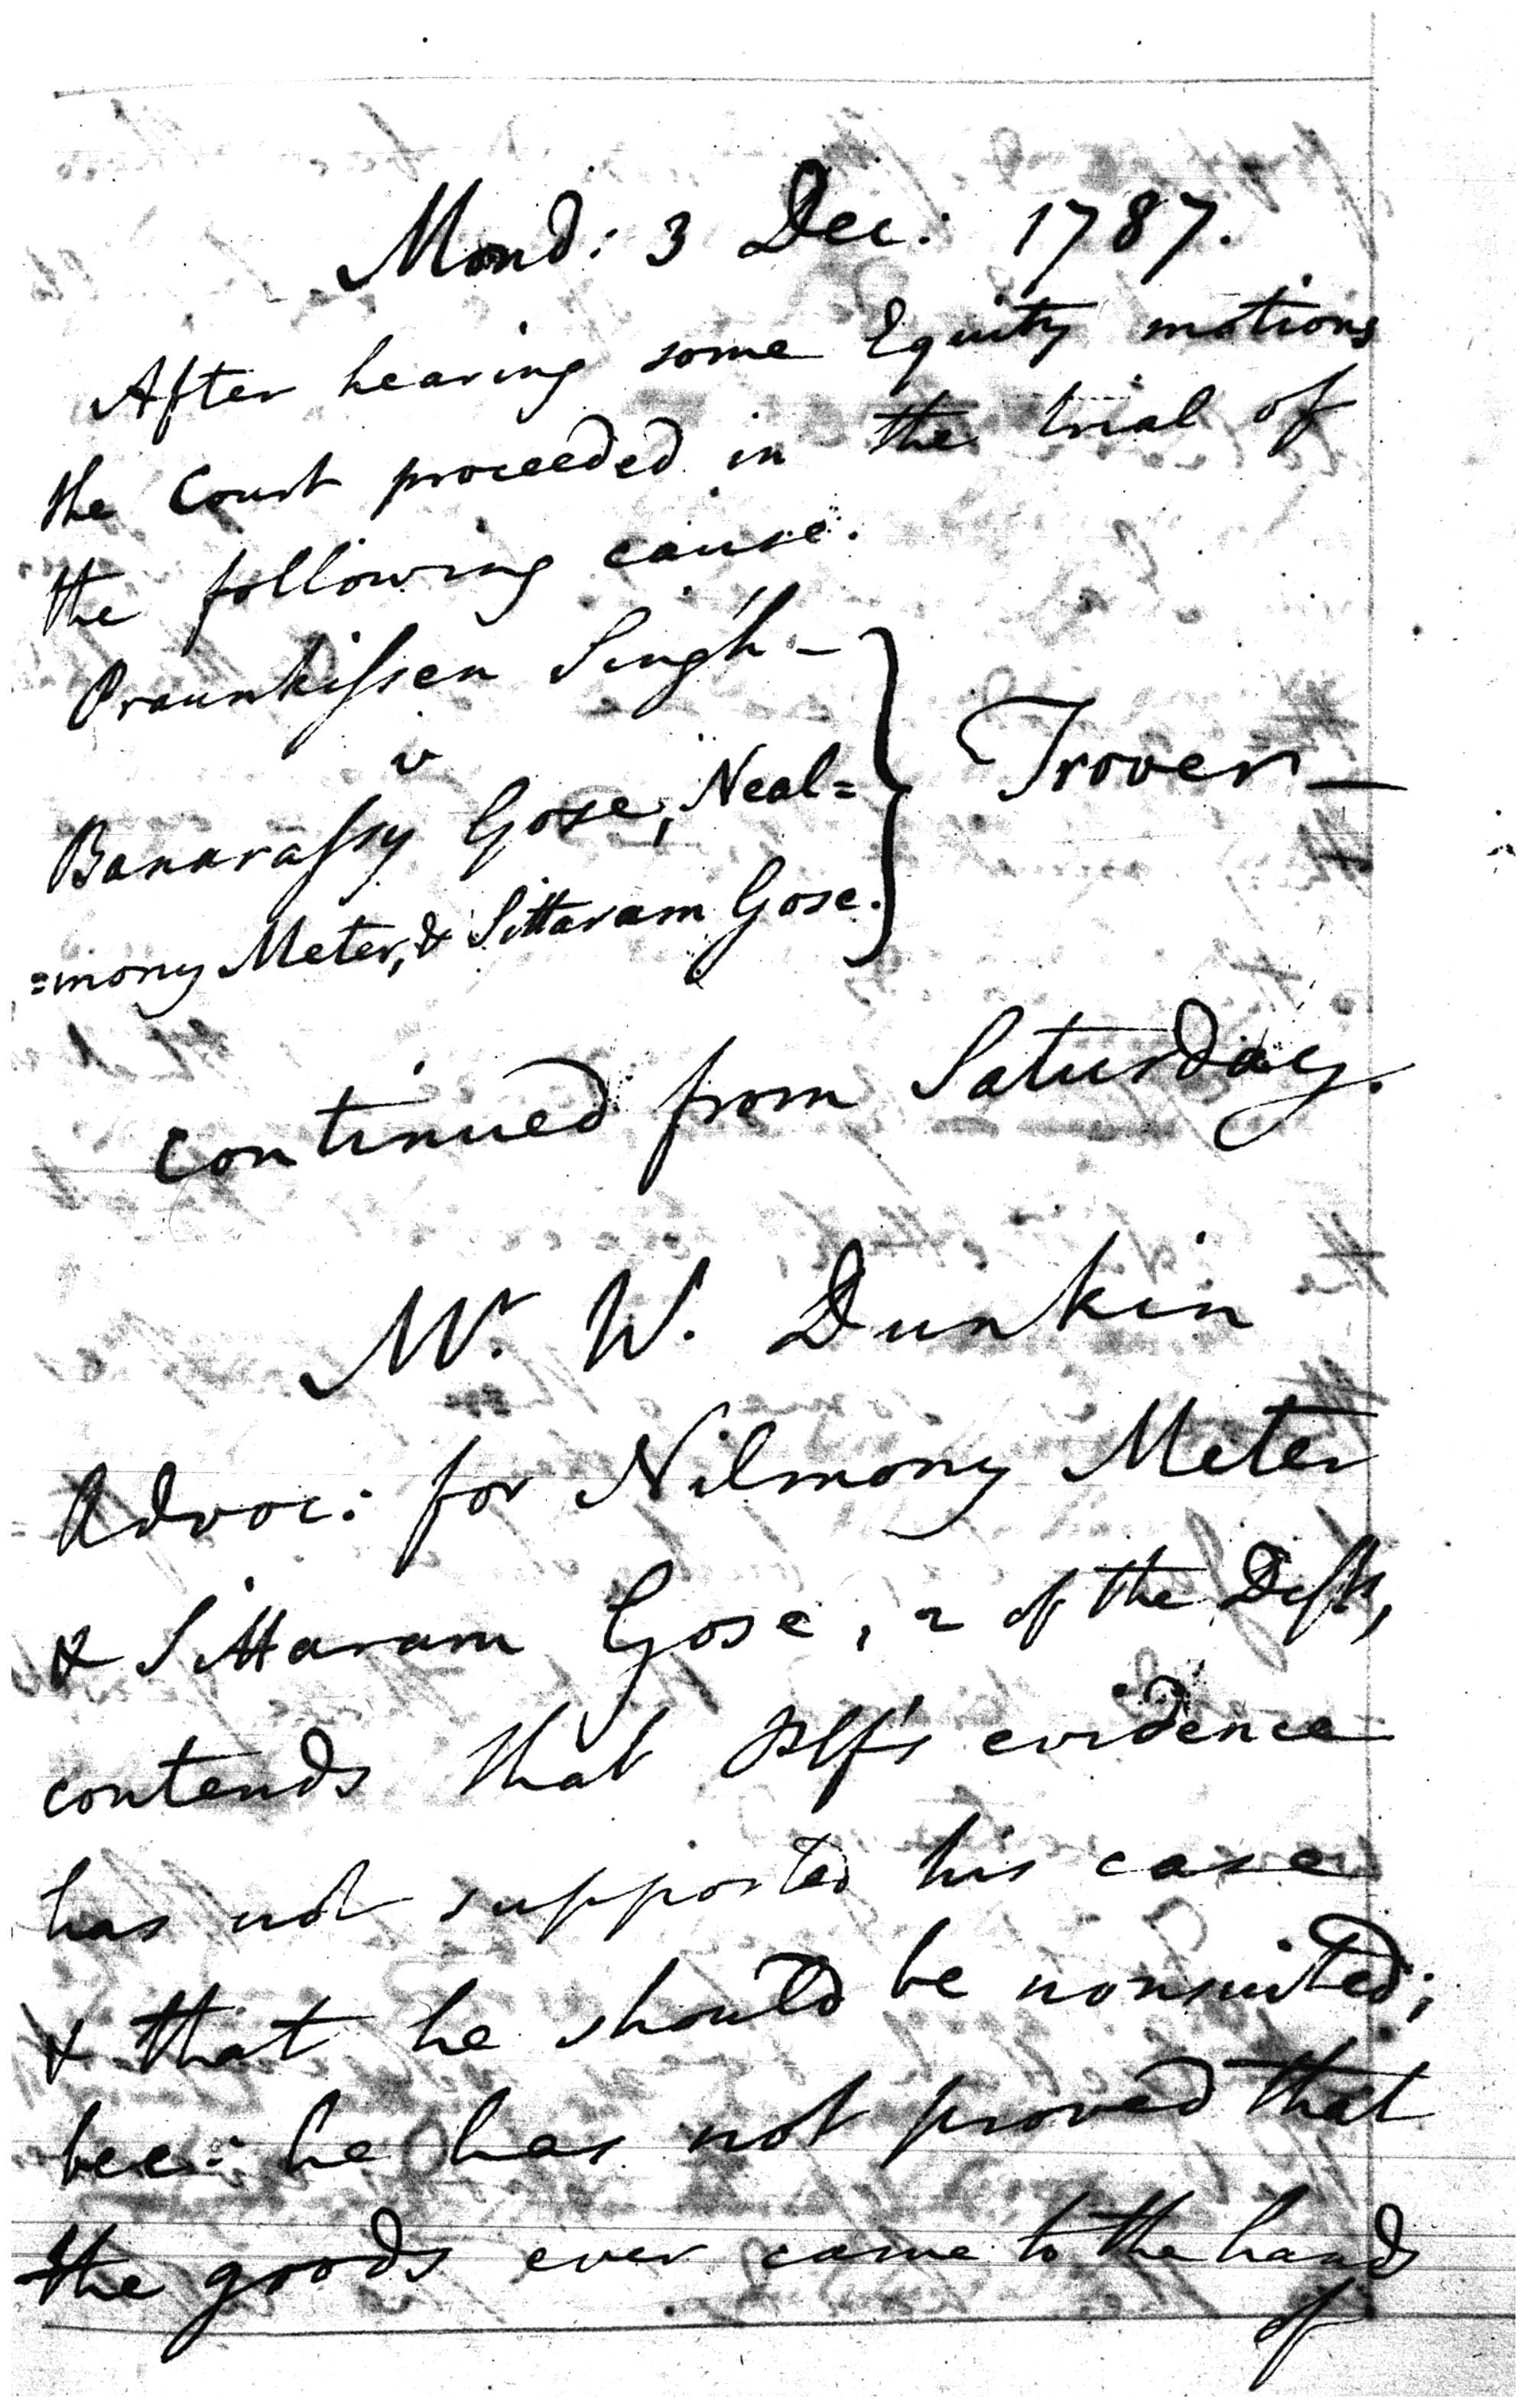 Mond: 3 Dec: 1787.
After hearing some Equity motions
the Court proceeded in the trial of
the following cause.
Praunkissen Singh -
v
Banarassy Gose, Neal=
=mony Meter, & Sittaram Gose.
Trover —
continued from Saturday.
Mr. W. Dunkin
Advoc: for Nilmony Meter
& Sittaram Gose, 2 of the Defts,
contends that Plf's evidence
has not supported his case
& that he should be nonsuited;
bec: he has not proved that
the goods ever came to the hands
of